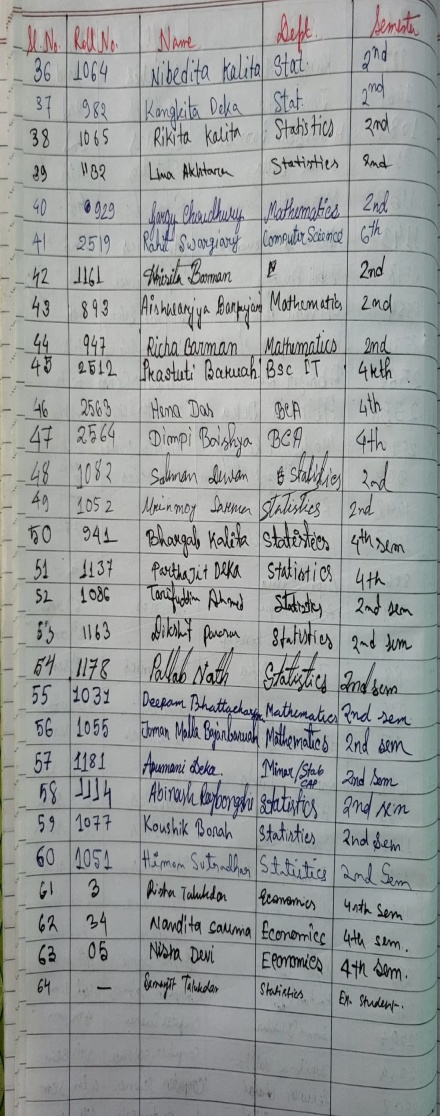 Sl. No. Roll No. Name Dept. Semester
36 1064 Nibedita Kalita Stat. 2nd
37 982 Kangkita Deka Stat. 2nd
38 1065 Rikita Kalita Statistics 2nd
39 1132 Lina Akhtara Statistics 2nd
40 929 Choudhury Mathematics 2nd
41 2519 Rohit Swargiary Computer Science 6th
42 1161 Barman 2nd
43 893 Mathematics 2nd
44 947 Richa Barman Mathematics 2nd
45 2512 Prastuti Baruah BSC IT 4th
46 2563 Hema Das BCA 4th
47 2564 Dimpi Baishya BCA 4th
48 1082 Salman Dewan Statistics 2nd
49 1052 Mrinmoy Sarma Statistics 2nd
50 941 Bhargab Kalita Statistics 4th sem
51 1137 Parthajit Deka Statistics 4th
52 1086 Tarifuddin Ahmed Statistics 2nd sem
53 1163 Dikshit Statistics 2nd sem
54 1178 Pallab Nath Statistics 2nd sem
55 1031 Deepam Bhattacharya Mathematics 2nd sem
56 1055 Malla Mathematics 2nd sem
57 1181 Deka. 2nd Sem
58 1114 Abinash Rajbongshi Statistics 2nd sem
59 1077 Koushik Borah Statistics 2nd Sem
60 1051 Himan Sutradhar Statistics 2nd Sem
61 3 Talukdar Economics 4th Sem
62 34 Nandita sarma Economics 4th sem.
63 05 Nisha Devi Economics 4th Sem.
64 — Talukdar Statistics Ex. Student.